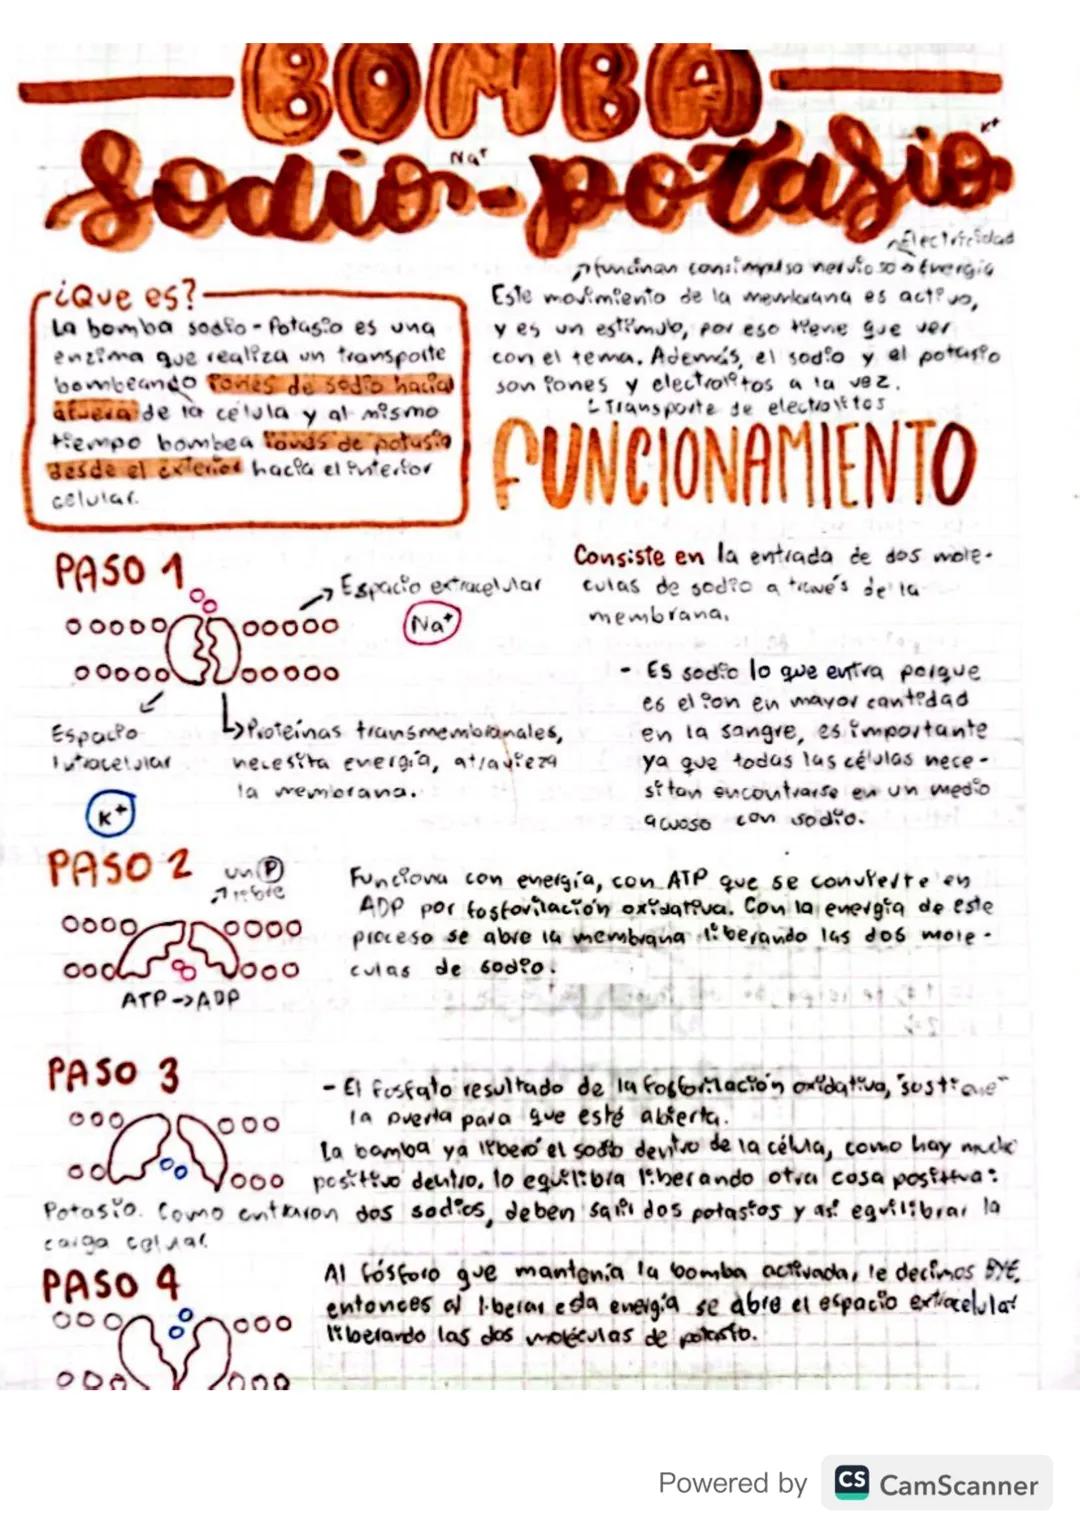 BOMBA
Na⁺ K⁺
Sodio-potasio
Electricidad
funcinan con impulso nervioso o Energía
¿Que es?
La bomba sodio-Potasio es una
enzima que realiza un transporte
bombeando iones de sodio hacia
afuera de la célula y al mismo
tiempo bombea iones de potasio
desde el exterior hacia el interior
celular.
Este movimiento de la membrana es activo,
y es un estímulo, por eso tiene que ver
con el tema. Además, el sodio y el potasio
son iones y electrolitos a la vez.
Transporte de electrolitos
FUNCIONAMIENTO
PASO 1
Espacio extracelular
Na⁺
Espacio
Intracelular
K⁺
Proteínas transmembranales,
necesita energía, atravieza
la membrana.
Consiste en la entrada de dos mole-
culas de sodio a través de la
membrana.
- Es sodio lo que entra porque
es el ion en mayor cantidad
en la sangre, es importante
ya que todas las células nece-
sitan encontrarse en un medio
acuoso con sodio.
PASO 2
un P
libre
ATP->ADP
Funciona con energía, con ATP que se convierte en
ADP por fosforilación oxidativa. Con la energía de este
proceso se abre la membrana liberando las dos mole-
culas de sodio.
PASO 3
- El fosfato resultado de la fosforilación oxidativa, "sostiene"
la puerta para que esté abierta.
La bomba ya liberó el sodio dentro de la célula, como hay mucho
positivo dentro, lo equilibra liberando otra cosa positiva:
Potasio. Como entraron dos sodios, deben salir dos potasios y así equilibrar la
carga celular
PASO 4
Al fósforo que mantenía la bomba activada, le decimos BYE,
entonces al liberar esta energía se abre el espacio extracelular
liberando las dos moléculas de potasio.
Powered by CS CamScanner